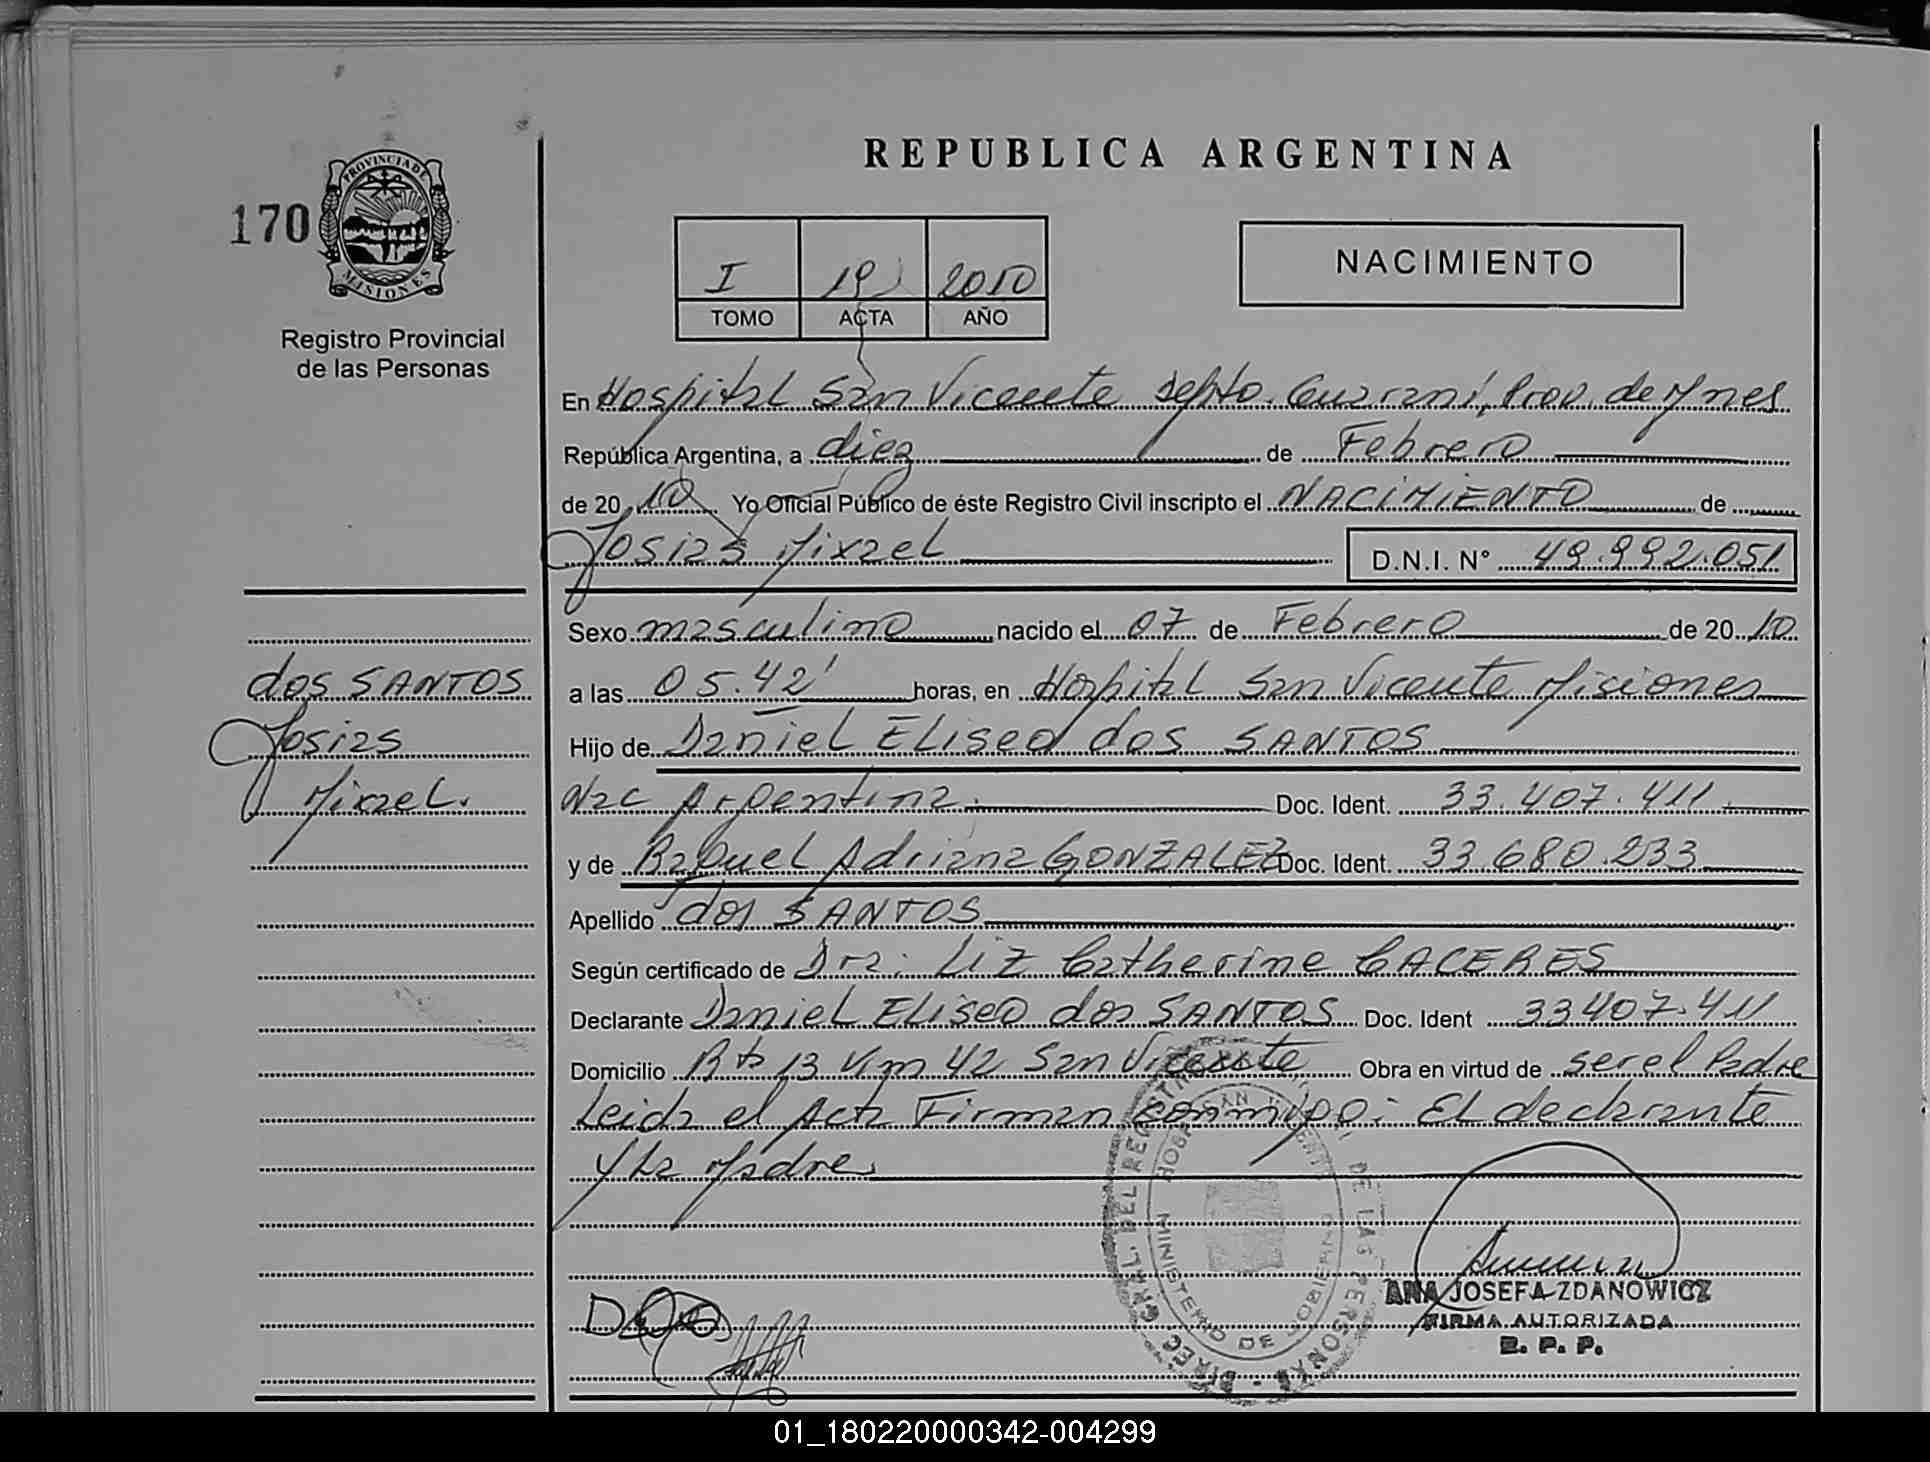 REPUBLICA ARGENTINA
170
PROVINCIA DE
MISIONES
Registro Provincial
de las Personas
I 2010
TOMO ACTA AÑO
NACIMIENTO
En Hospital San Vicente Depto. Guaraní, Prov. de Mnes
República Argentina, a diez de Febrero
de 2010 Yo Oficial Público de éste Registro Civil inscripto el NACIMIENTO de
Josias Mixael D.N.I. N° 49.992.051
Sexo masculino nacido el 07 de Febrero de 2010
dos SANTOS
a las 05.42' horas, en Hospital San Vicente Misiones
Josias
Hijo de Daniel Eliseo dos SANTOS
Mixael.
Nac Argentina. Doc. Ident. 33.407.411.
y de Raquel Adriana GONZALEZ Doc. Ident. 33.680.233
Apellido dos SANTOS
Según certificado de Dra. Liz Catherine CACERES
Declarante Daniel Eliseo dos SANTOS Doc. Ident 33407.411
Domicilio Rta 13 Km 42 San Vicente Obra en virtud de ser el Padre
Leida el Acta Firman conmigo: El declarante
y La Madre
DIREC. GRAL. DEL REGISTRO DE LAS PERSONAS
MINISTERIO DE GOBIERNO
ANA JOSEFA ZDANOWICZ
FIRMA AUTORIZADA
R. P. P.
01_180220000342-004299